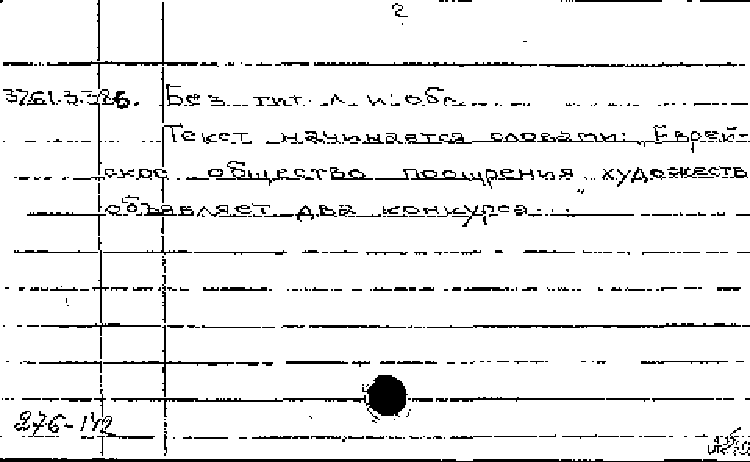 2
Без тит. л. и обл.
Текст начинается словами: Еврей-
ское общество поощрения художеств
объявляет два конкурса...
276-142